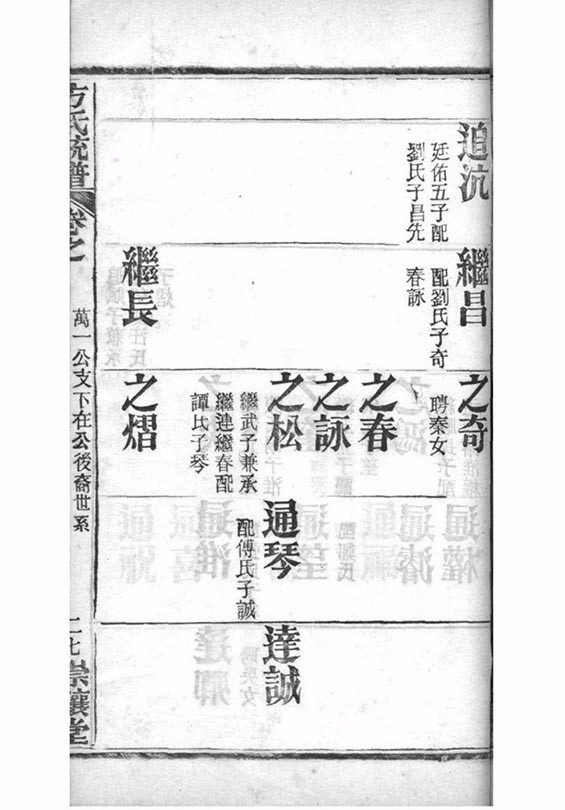 追沆
廷佑五子配
劉氏子昌先
繼昌
配劉氏子奇
春詠
之奇
聘秦女
之春
之詠
之松
繼武子兼承
繼連繼春配
譚氏子琴
通琴
配傅氏子誠
達誠
繼長
之熠
方氏統譜
卷之
萬一公支下在公後裔世系
二七
崇讓堂